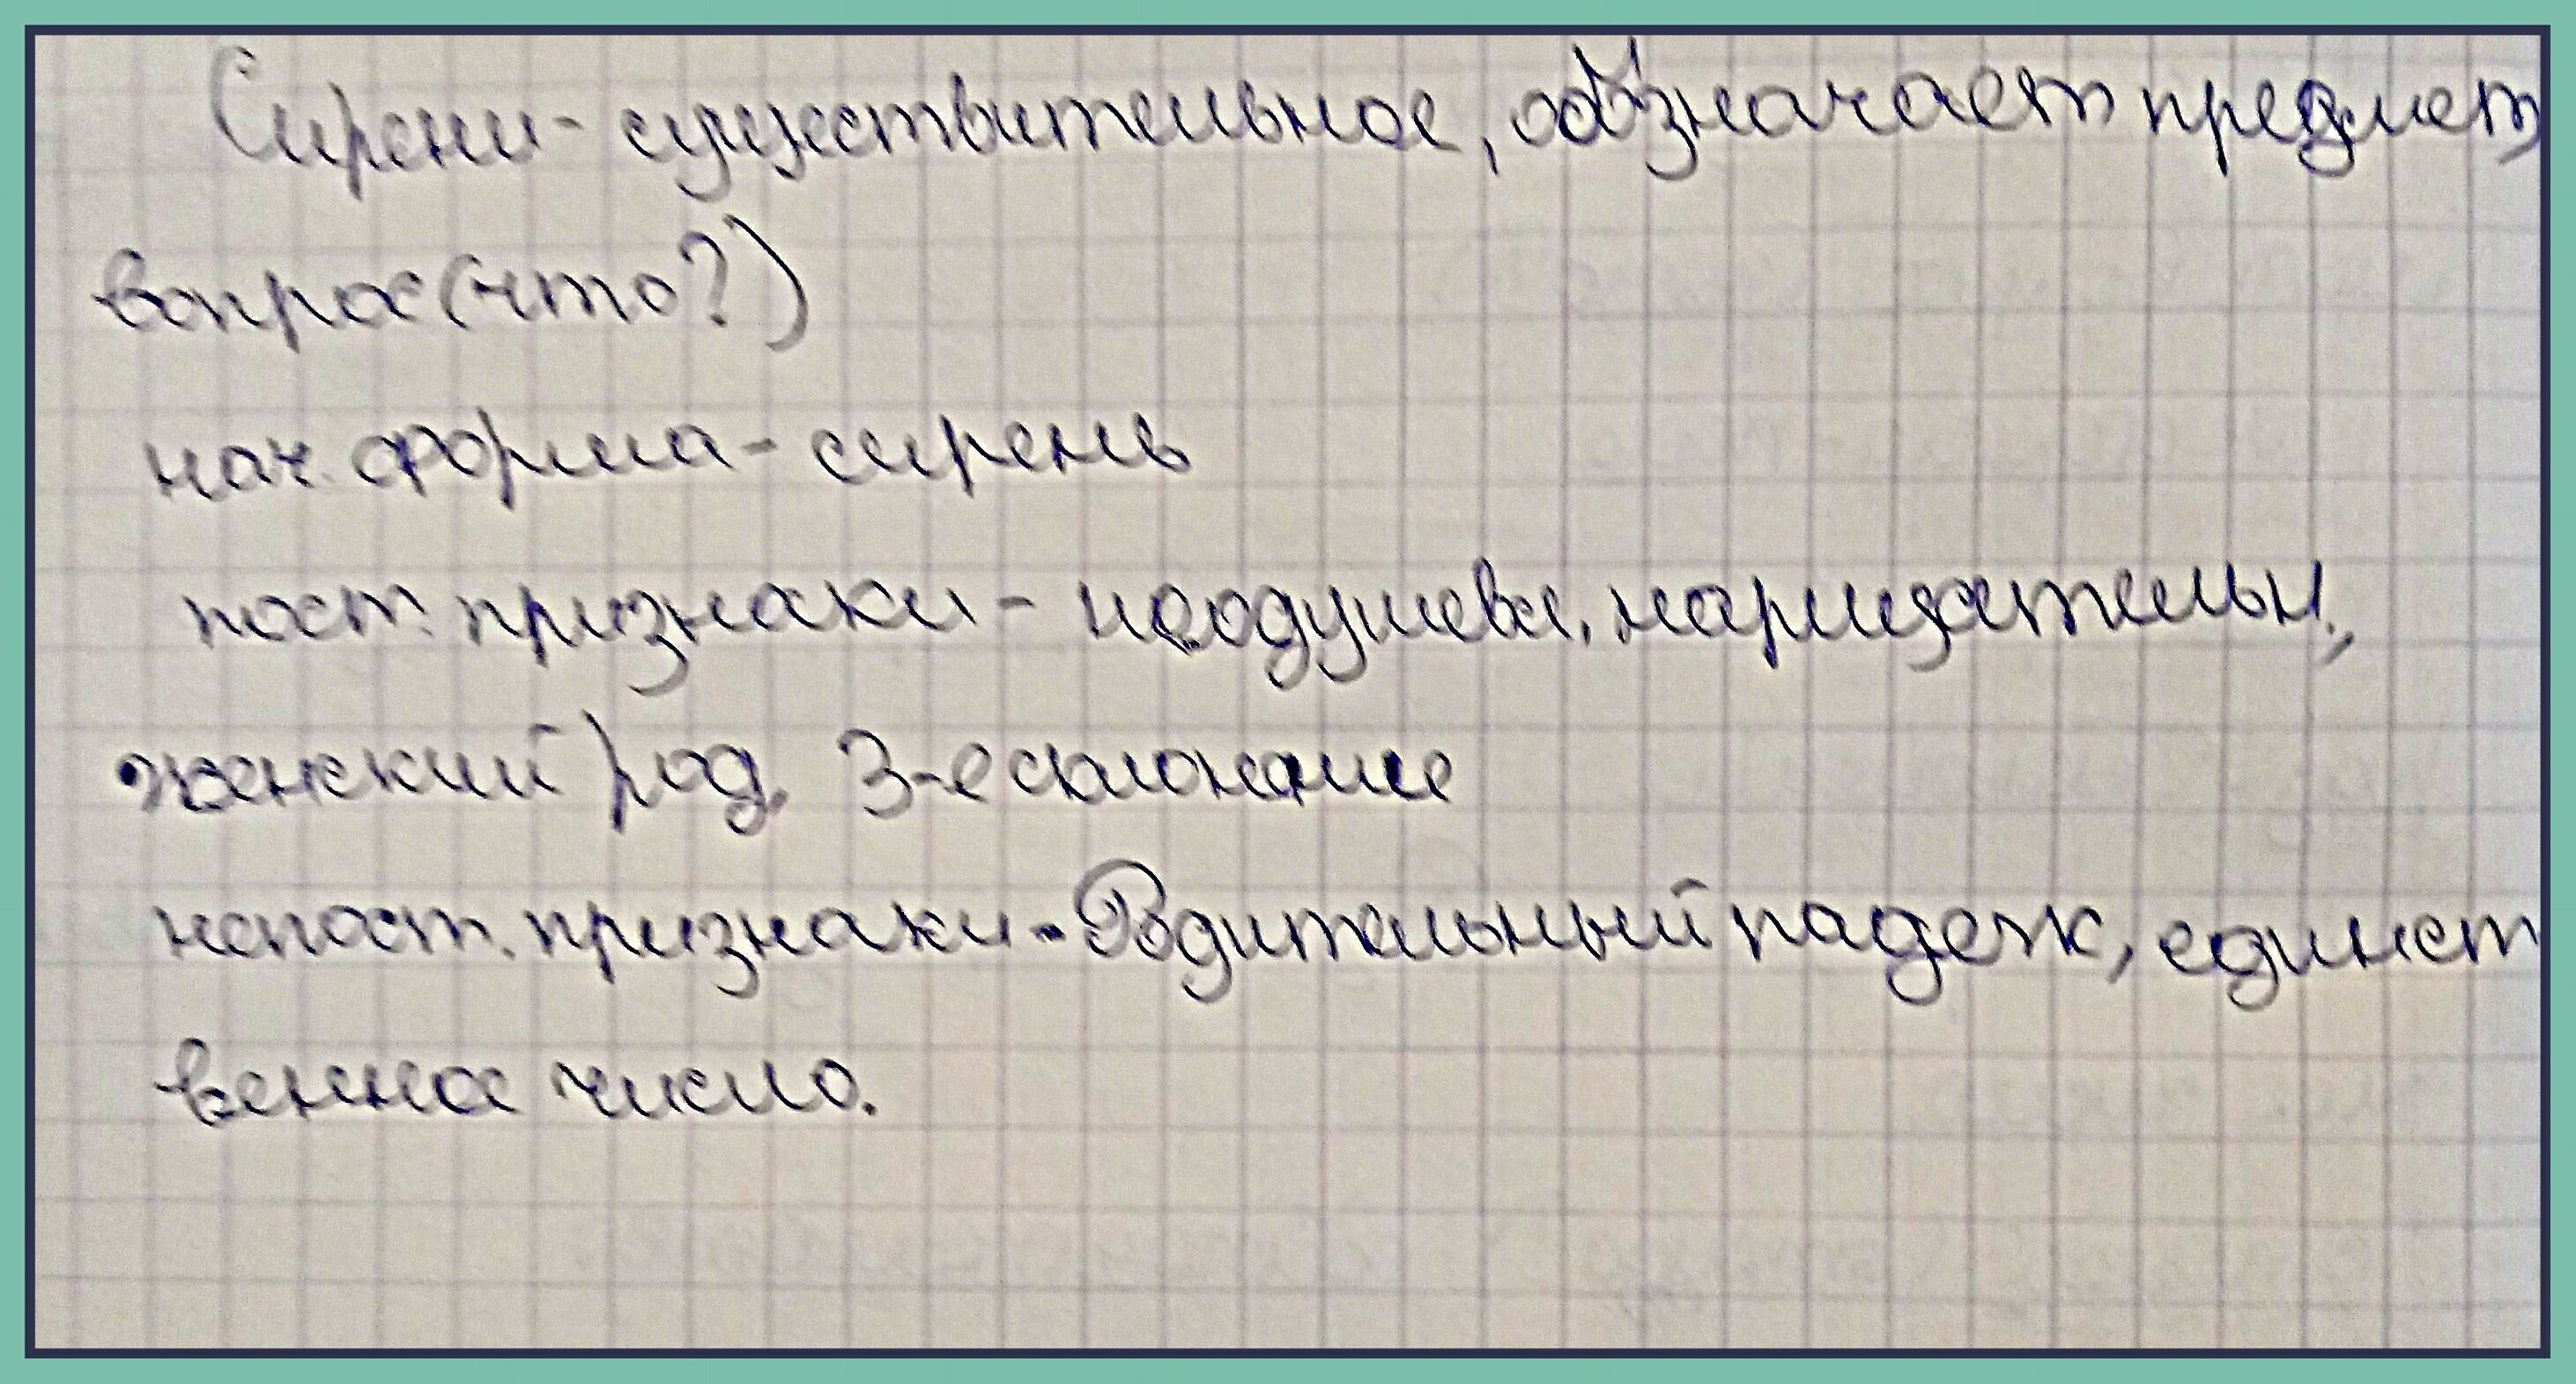 Сирени - существительное, обозначает предмет,
вопрос (что?)
нач. форма - сирень
пост. признаки - неодушевл., нарицательн.,
женский род, 3-е склонение
непост. признаки - Родительный падеж, единст
венное число.